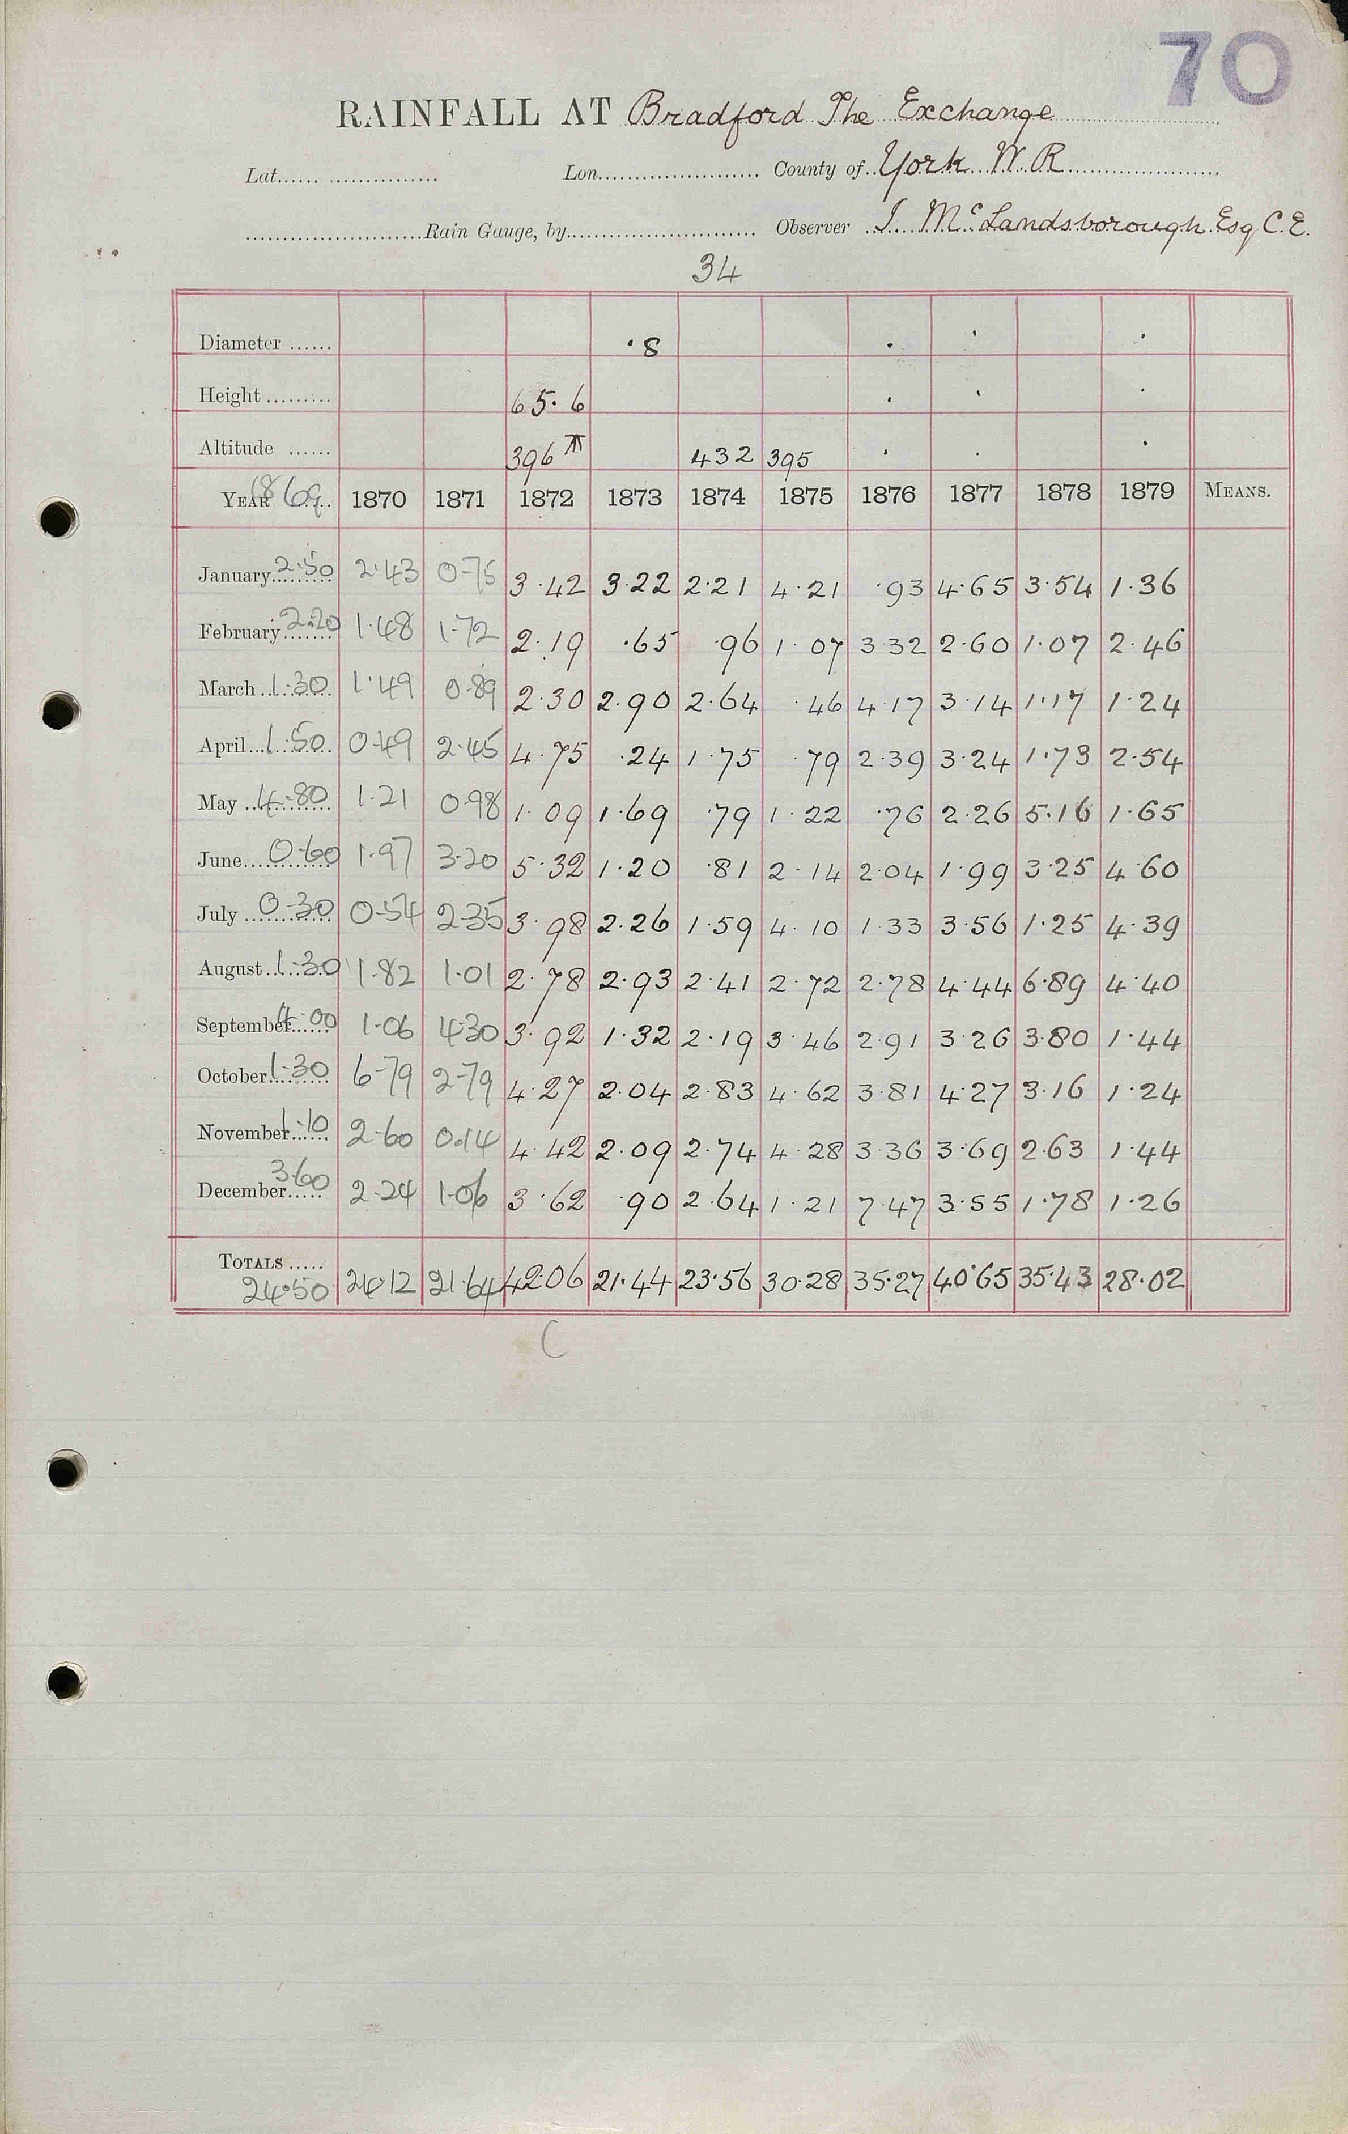 70
RAINFALL AT Bradford The Exchange
Lat. Lon. County of York W. R
Rain Gauge, by Observer J. McLandsborough Esq C.E.
34
Diameter ·8 · · ·
Height 65·6 · · ·
Altitude 396 T 432 395 · · ·
YEAR 1869 1870 1871 1872 1873 1874 1875 1876 1877 1878 1879 MEANS.
January 2·50 2·43 0·75 3·42 3·22 2·21 4·21 ·93 4·65 3·54 1·36
February 2·20 1·48 1·72 2·19 ·65 ·96 1·07 3·32 2·60 1·07 2·46
March 1·30 1·49 0·89 2·30 2·90 2·64 ·46 4·17 3·14 1·17 1·24
April 1·50 0·49 2·45 4·75 ·24 1·75 ·79 2·39 3·24 1·73 2·54
May 4·80 1·21 0·98 1·09 1·69 ·79 1·22 ·76 2·26 5·16 1·65
June 0·60 1·97 3·20 5·32 1·20 ·81 2·14 2·04 1·99 3·25 4·60
July 0·30 0·54 2·35 3·98 2·26 1·59 4·10 1·33 3·56 1·25 4·39
August 1·30 1·82 1·01 2·78 2·93 2·41 2·72 2·78 4·44 6·89 4·40
September 4·00 1·06 4·30 3·92 1·32 2·19 3·46 2·91 3·26 3·80 1·44
October 1·30 6·79 2·79 4·27 2·04 2·83 4·62 3·81 4·27 3·16 1·24
November 1·10 2·60 0·14 4·42 2·09 2·74 4·28 3·36 3·69 2·63 1·44
December 3·60 2·24 1·06 3·62 ·90 2·64 1·21 7·47 3·55 1·78 1·26
TOTALS 24·50 24·12 21·64 42·06 21·44 23·56 30·28 35·27 40·65 35·43 28·02
C